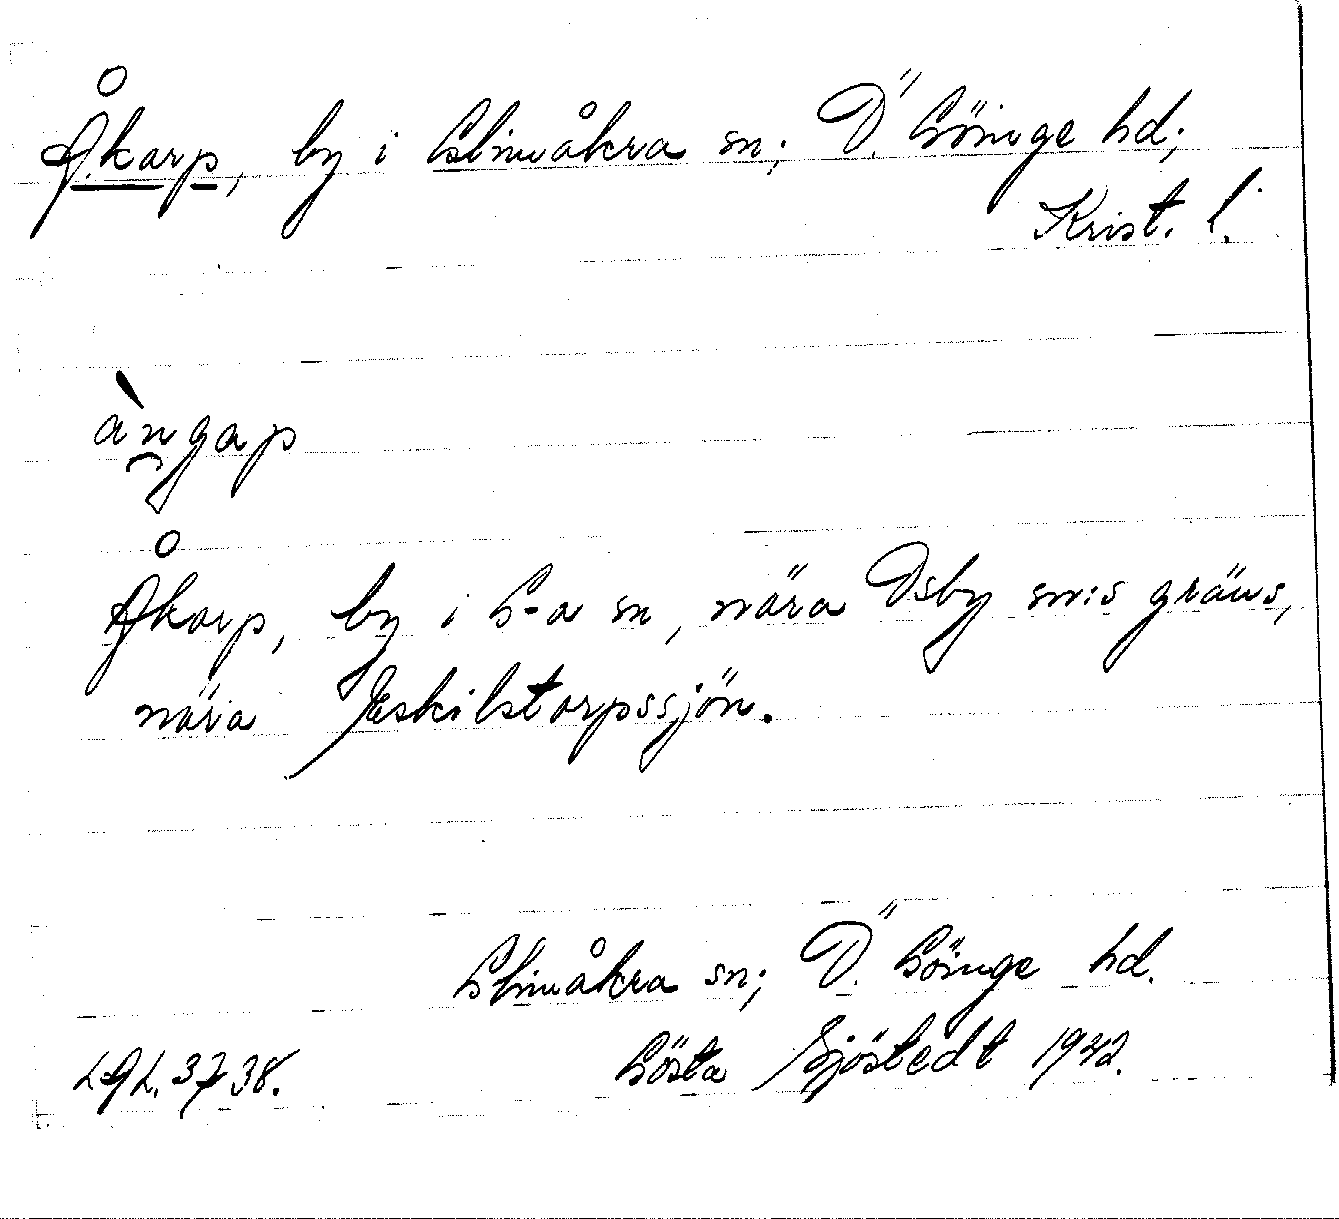 Åkarp, by i Glimåkra sn; Ö. Göinge hd;
Krist. l.
àngap
Åkarp, by i G-a sn, nära Osby sn:s gräns,
nära Eskilstorpssjön.
Glimåkra sn; Ö. Göinge hd.
LAL. 3738. Gösta Sjöstedt 1942.